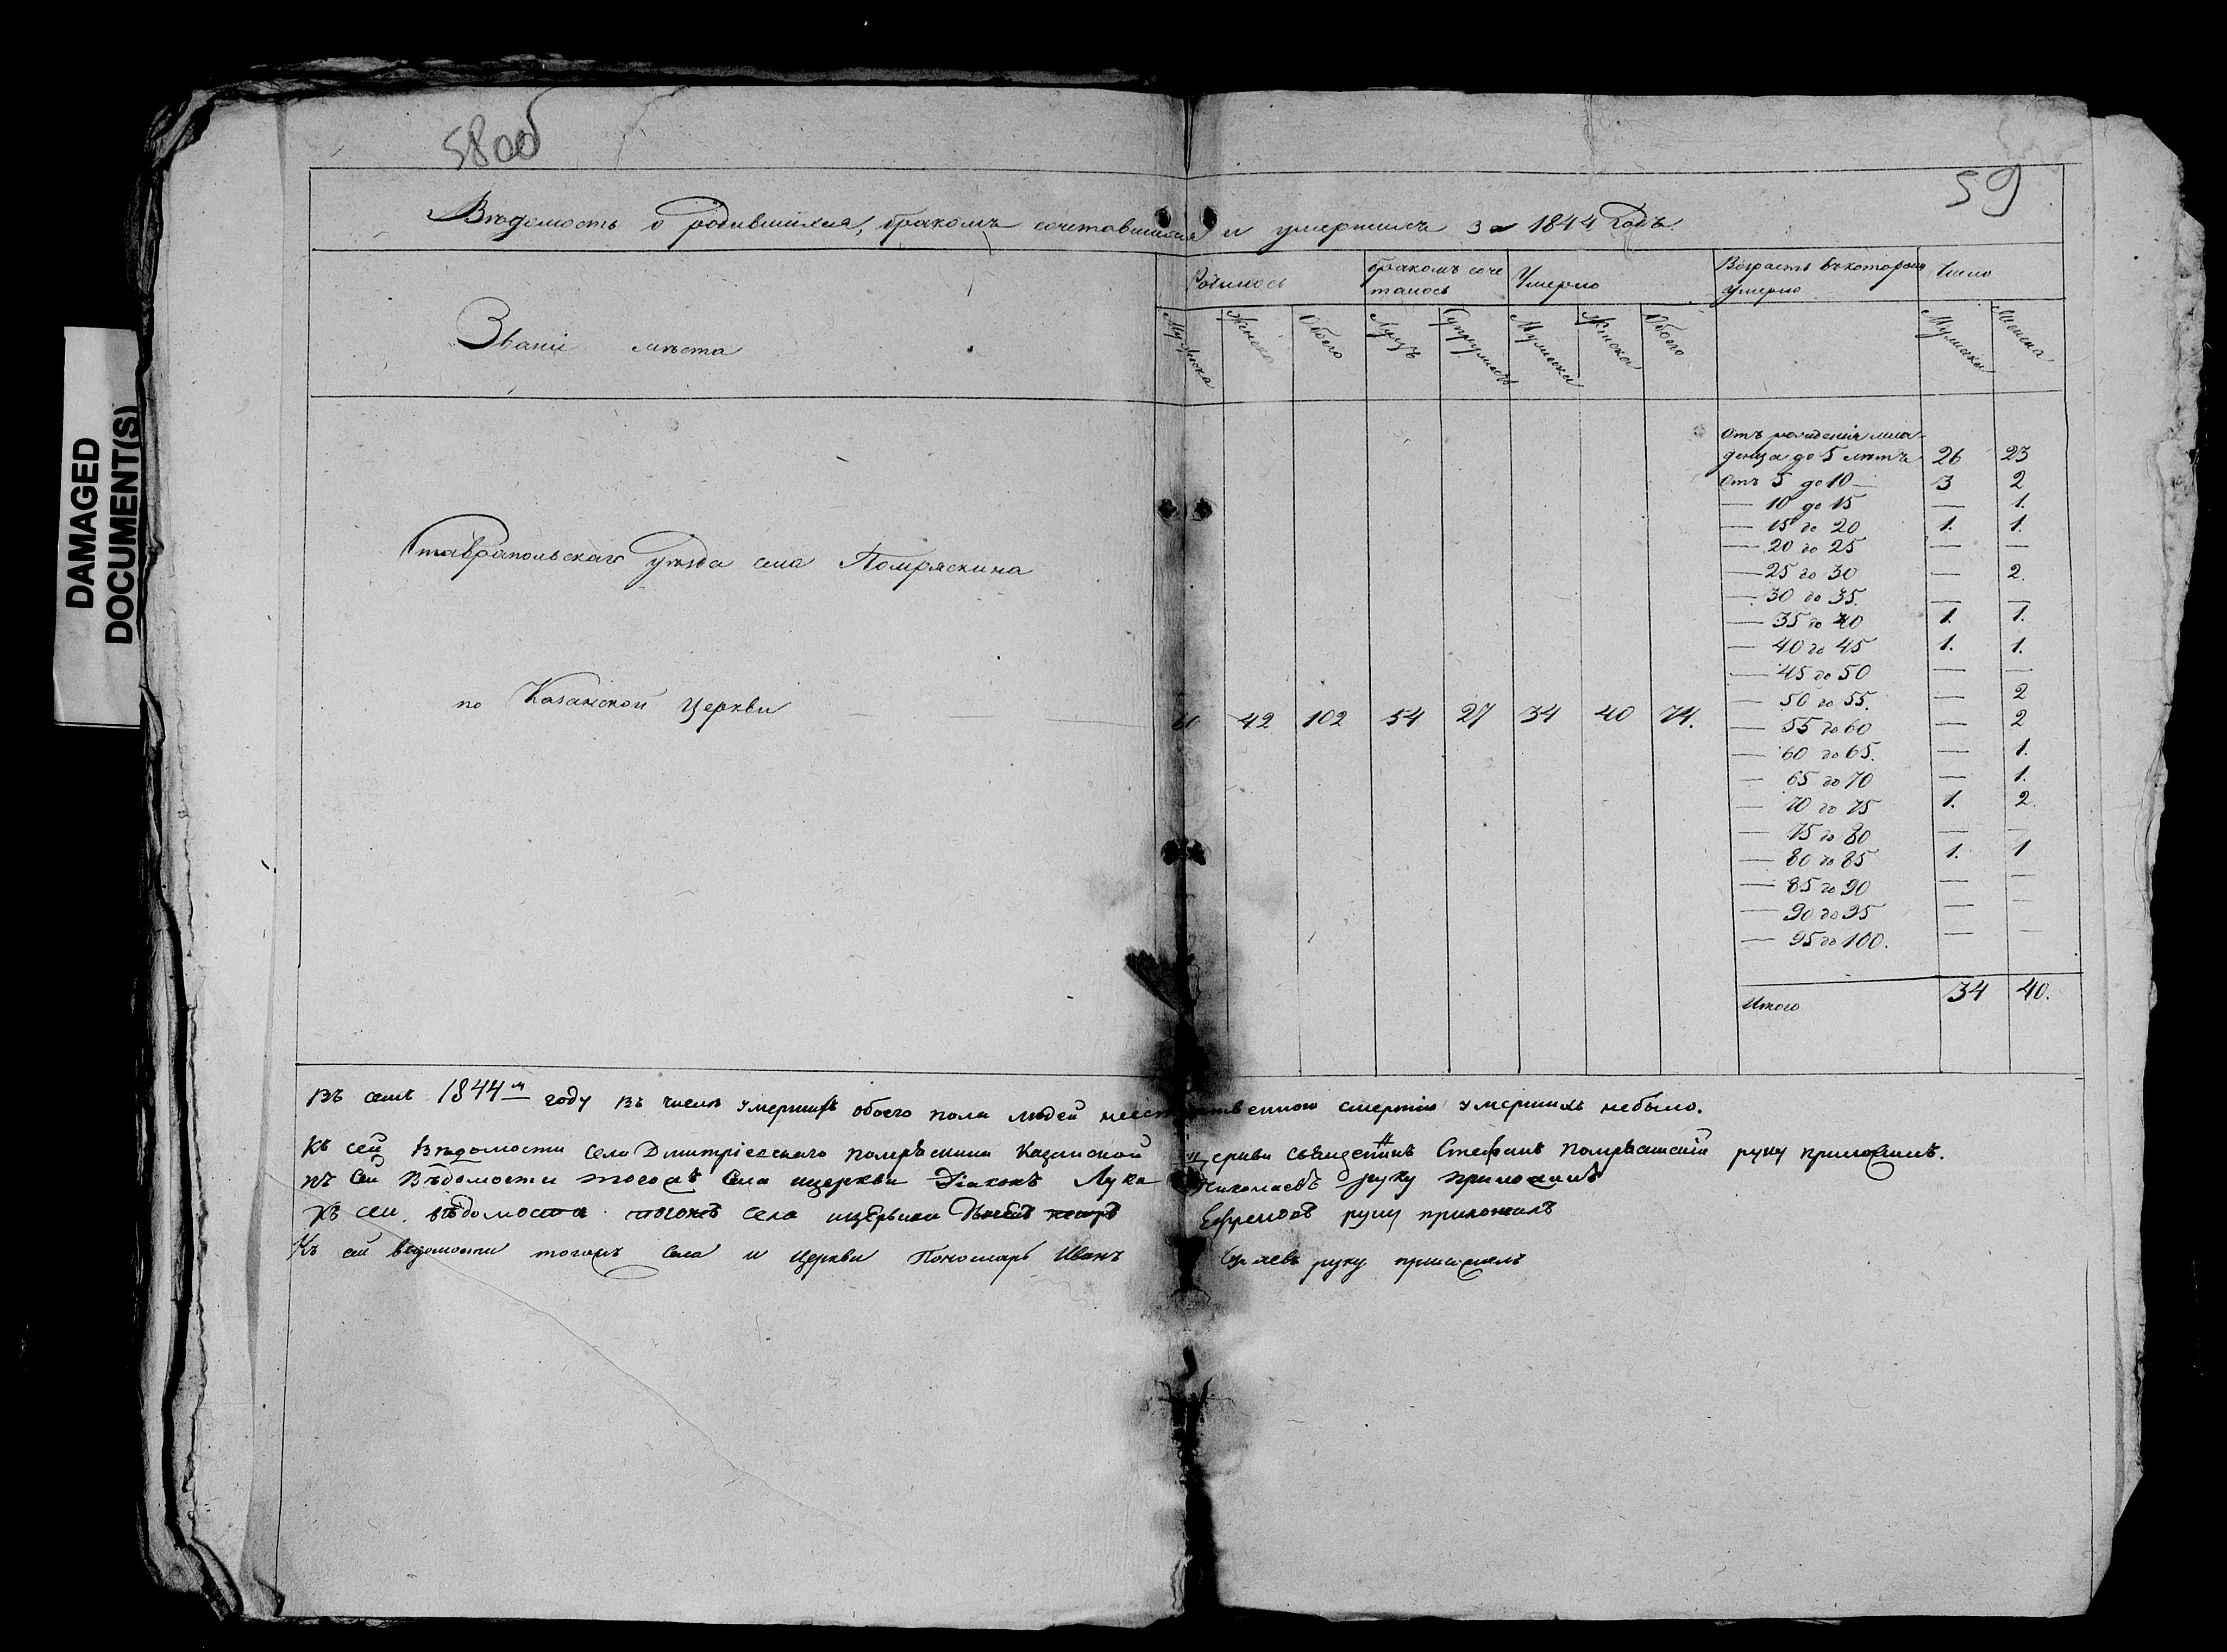 58об
59
DAMAGED
DOCUMENT(S)
Вѣдомость о родившихся, бракомъ сочетавшихся и умершихъ за 1844 Годъ.
Званіе мѣста
Родилось
бракомъ соче
талось
Умерло
Возрастъ въ которомъ
умерло
Число
Мужеска
Женска
Обоего
Лицъ
Супружествъ
Мужеска
Женска
Обоего
Мужеска
Женска
Ставропольскаго Уѣзда села Помряскина
по Казанской Церкви
60 42 102 54 27 34 40 74.
Отъ рожденія мла-
денца до 5 лѣтъ 26 23
Отъ 5 до 10 — 3 2
— 10 до 15 — 1.
— 15 до 20 1. 1.
— 20 до 25 — —
— 25 до 30 — 2.
— 30 до 35. — —
— 35 до 40 1. 1.
— 40 до 45 1. 1.
— 45 до 50 — —
— 50 до 55. — 2
— 55 до 60 — 2
— 60 до 65. — 1.
— 65 до 70 — 1.
— 70 до 75 1. 2.
— 75 до 80 — —
— 80 до 85 1. 1
— 85 до 90 — —
— 90 до 95 — —
— 95 до 100. — —
Итого 34 40.
Въ семъ 1844м году въ числѣ умершихъ обоего пола людей неестественною смертію умершихъ небыло.
Къ сей Вѣдомости села Дмитріевскаго Помряскина Казанской церкви священникъ Стефанъ руку приложилъ.
Къ сей Вѣдомости тогожъ села ицеркви Діаконъ Лука Николаевъ руку приложилъ
Къ сей вѣдомости тогоже села ицеркви Ефремовъ руку приложилъ
Къ сей ведомости тогожъ села и церкви Пономарь Иванъ руку приложилъ